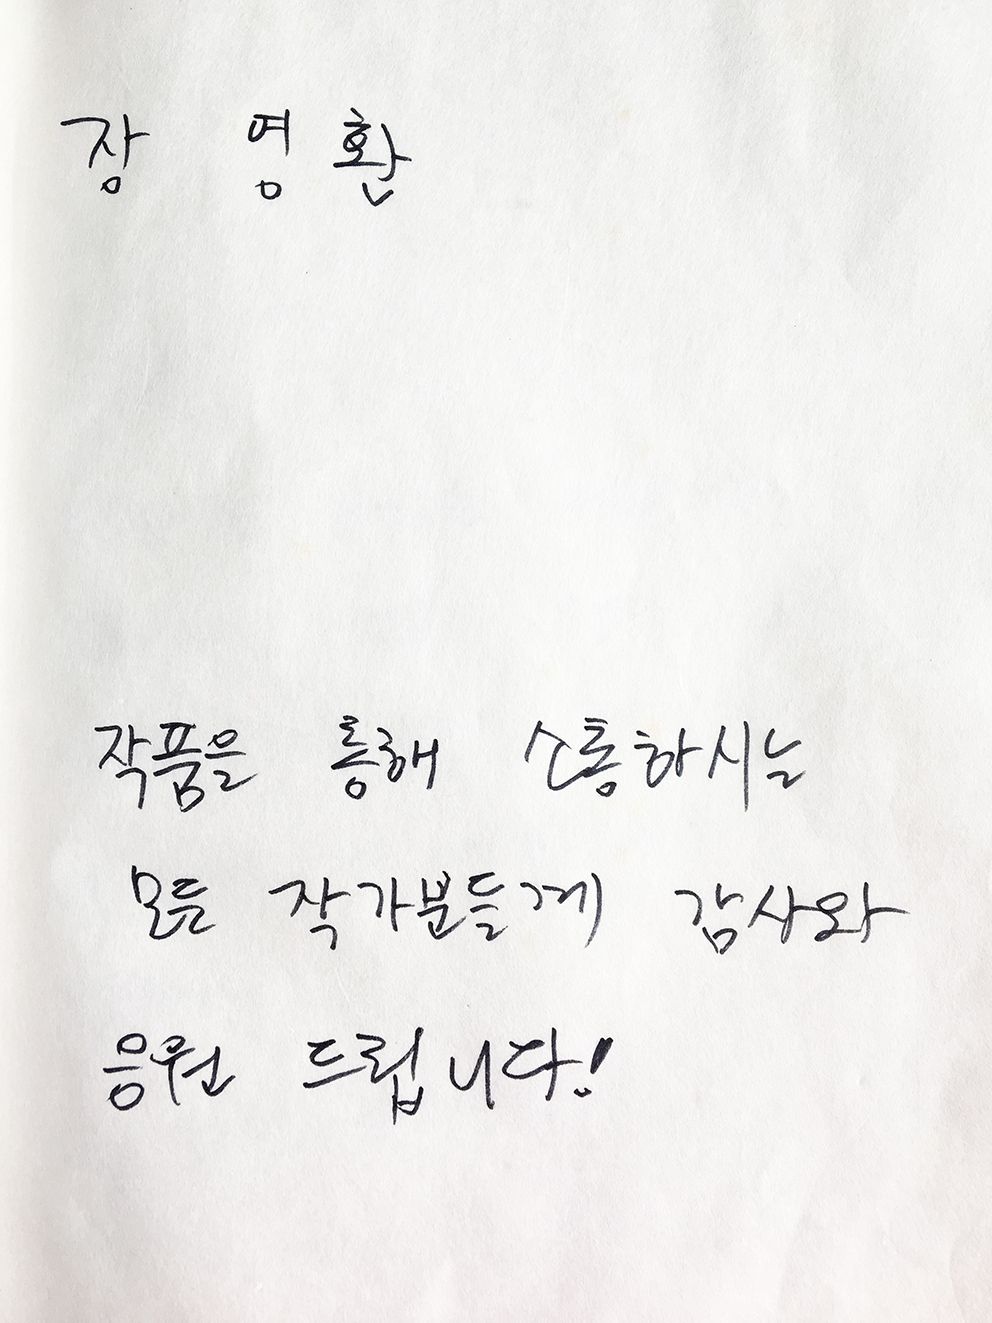 장 영환
작품을 통해 소통하시는
모든 작가분들께 감사와
응원 드립니다!